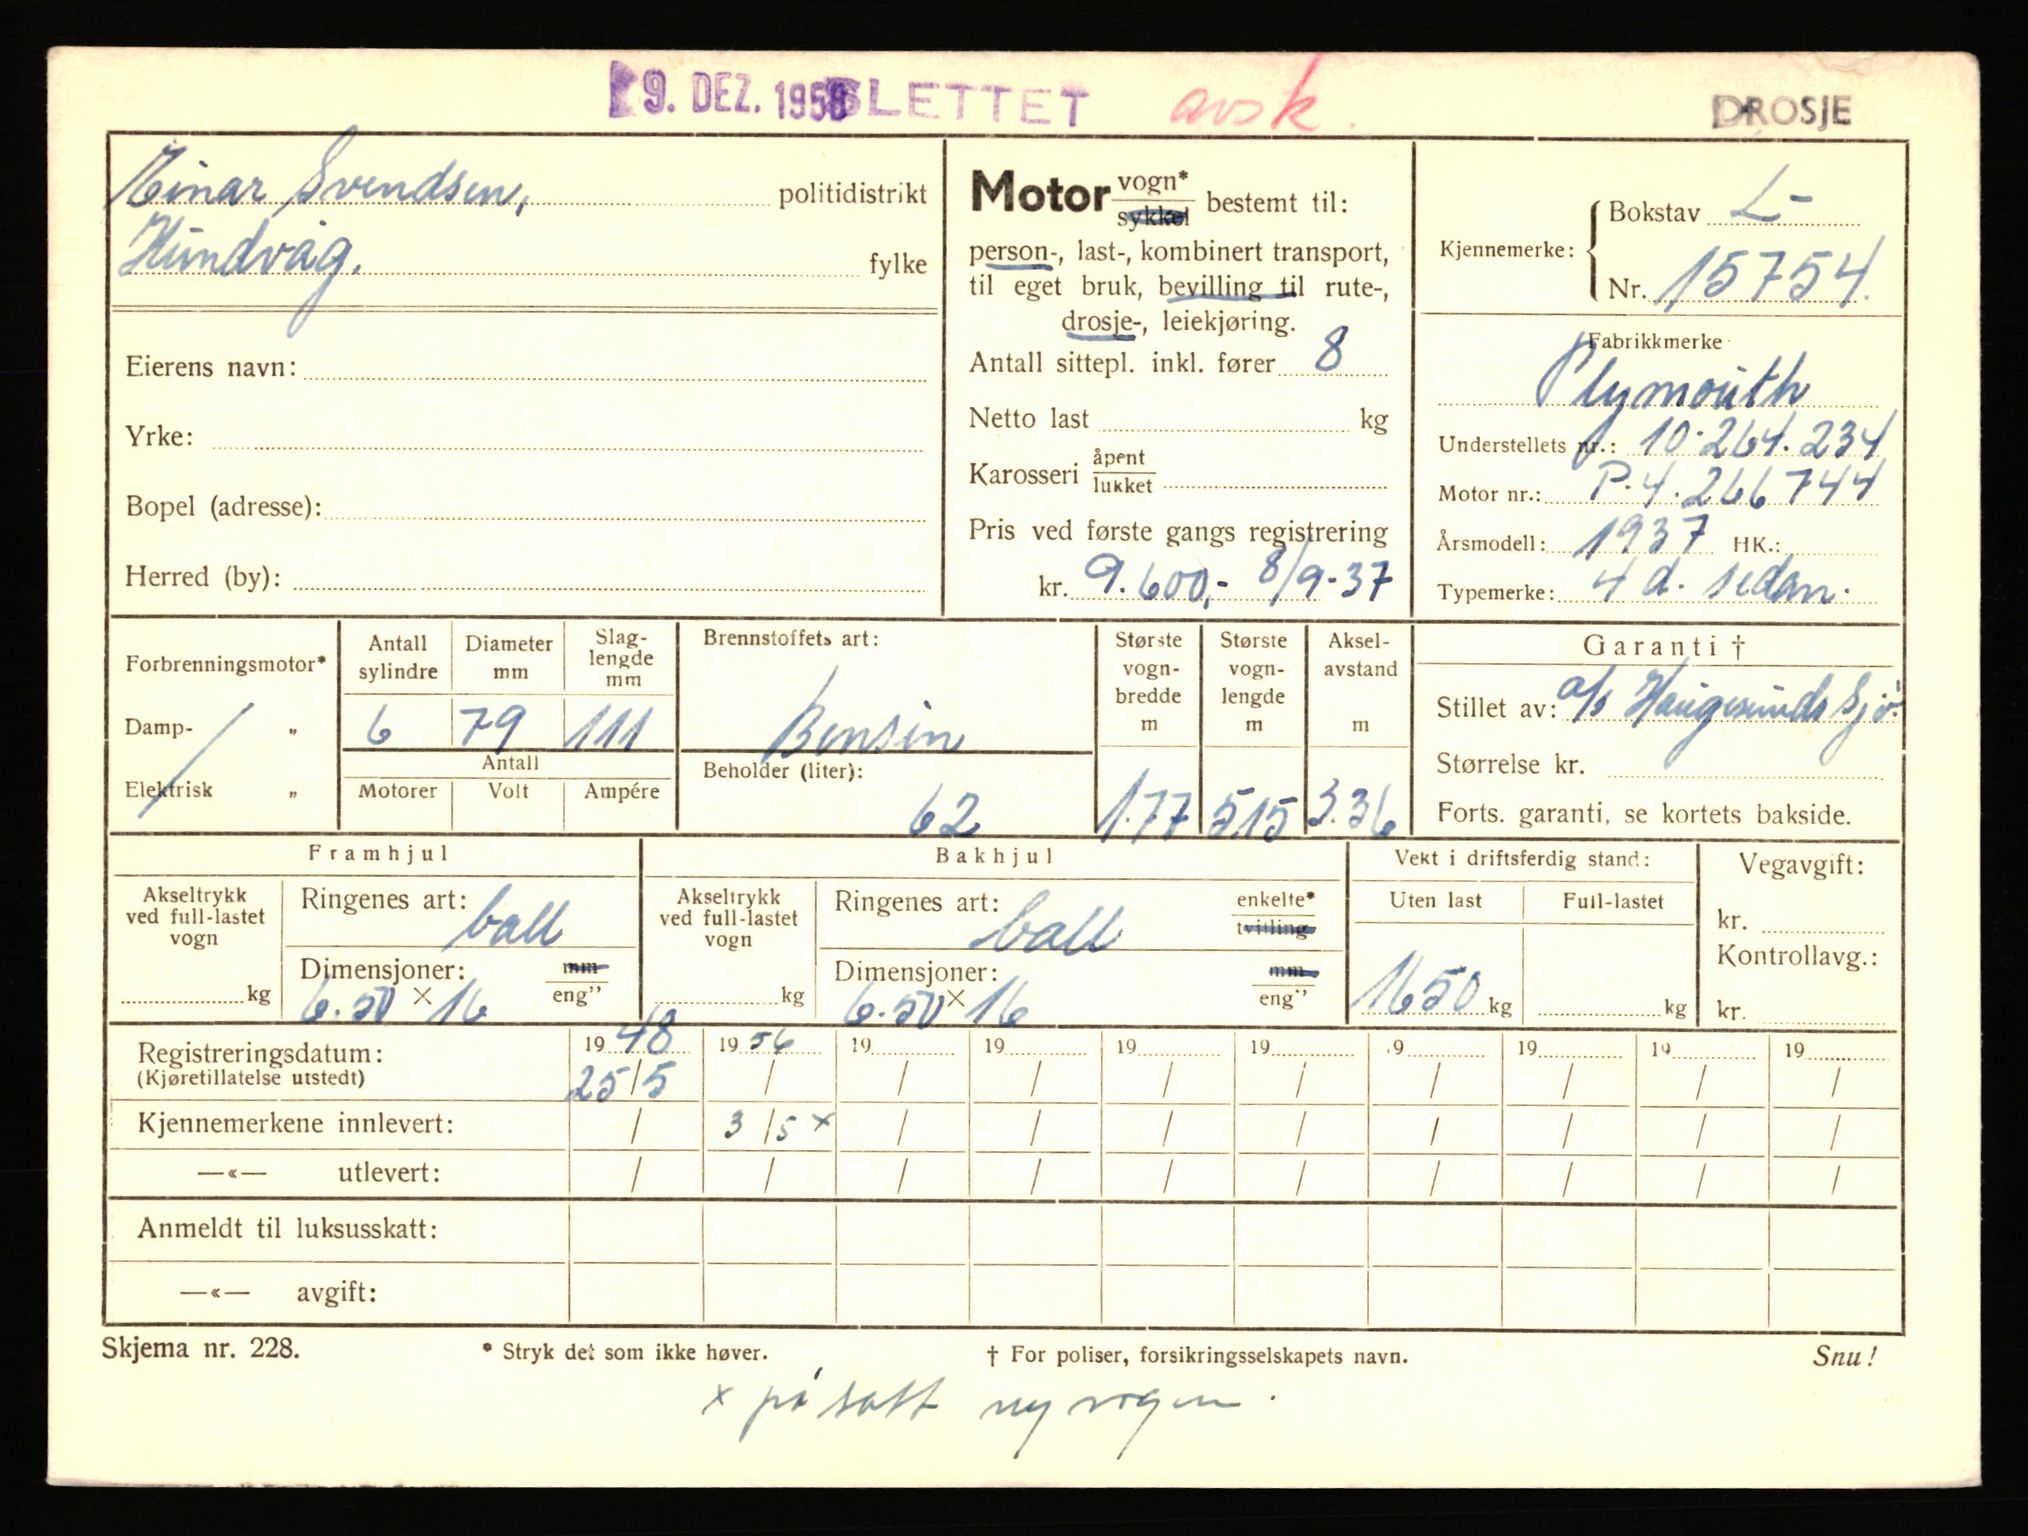 9. DEZ. 1958 SLETTET avsk.
DROSJE
Einar Svendsen, politidistrikt
Hundvåg. fylke
Eierens navn:
Yrke:
Bopel (adresse):
Herred (by):
Motor vogn*
sykkel bestemt til:
person-, last-, kombinert transport,
til eget bruk, bevilling til rute-,
drosje-, leiekjøring.
Antall sittepl. inkl. fører 8
Netto last kg
Karosseri åpent
lukket
Pris ved første gangs registrering
kr. 9.600,- 8/9-37
Kjennemerke: Bokstav L-
Nr. 15754.
Fabrikkmerke
Plymouth
Understellets nr.: 10.264.234
Motor nr.: P.4.266744
Årsmodell: 1937 HK.:
Typemerke: 4 d. sedan.
Forbrenningsmotor*
Damp- „
Elektrisk „
Antall sylindre
Diameter mm
Slag-lengde mm
6 79 111
Antall
Motorer Volt Ampére
Brennstoffets art:
Bensin
Beholder (liter):
62
Største vogn-bredde m
1.77
Største vogn-lengde m
5.15
Aksel-avstand m
3.36
Garanti †
Stillet av: a/s Haugesunds Sjø.
Størrelse kr.
Forts. garanti, se kortets bakside.
Framhjul
Akseltrykk
ved full-lastet
vogn
kg
Ringenes art: ball
Dimensjoner: mm
6.50 × 16 eng"
Bakhjul
Akseltrykk
ved full-lastet
vogn
kg
Ringenes art: ball enkelte*
tvilling
Dimensjoner: mm
6.50 × 16 eng"
Vekt i driftsferdig stand:
Uten last Full-lastet
1650 kg kg
Vegavgift:
kr.
Kontrollavg.:
kr.
Registreringsdatum: 1948 1956 19 19 19 19 19 19 19 19
(Kjøretillatelse utstedt) 25/5 / / / / / / / / /
Kjennemerkene innlevert: / 3/5 x / / / / / / / /
—«— utlevert: / / / / / / / / / /
Anmeldt til luksusskatt:
—«— avgift:
Skjema nr. 228. * Stryk det som ikke høver. † For poliser, forsikringsselskapets navn. Snu!
x påsatt ny vogn.